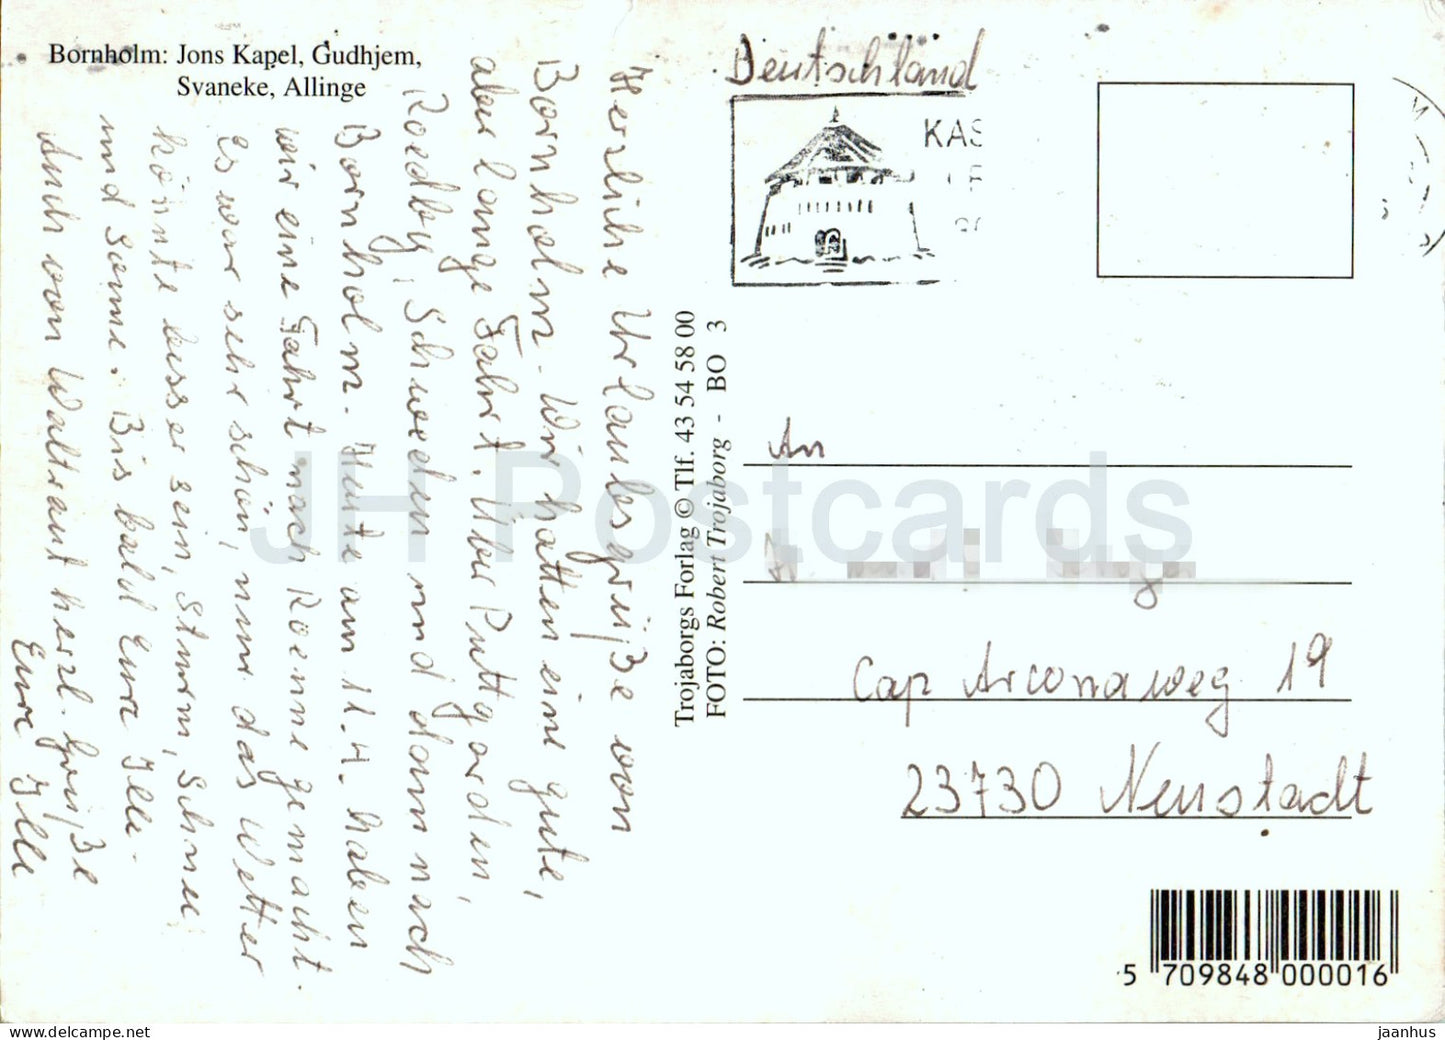 Bornholm: Jons Kapel, Gudhjem,
Svaneke, Allinge
Herzliche Urlaubsgrüße von
Bornholm. Wir hatten eine gute,
aber lange Fahrt. Über Puttgarden,
Roedby, Schweden und dann nach
Bornholm. Heute am 11.4. haben
wir eine Fahrt nach Roenne gemacht.
Es war sehr schön, nur das Wetter
könnte besser sein, Sturm, Schnee
und Sonne. Bis bald Eure Ille.
Auch von Waltraut herzl. Grüße
Eure Ille
Trojaborgs Forlag © Tlf. 43 54 58 00
FOTO: Robert Trojaborg - BO 3
Deutschland
KAS
An
Cap Arconaweg 19
23730 Neustadt
5 709848 000016
JH Postcards
jaanhus